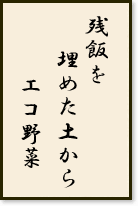 残飯を
埋めた土から
エコ野菜